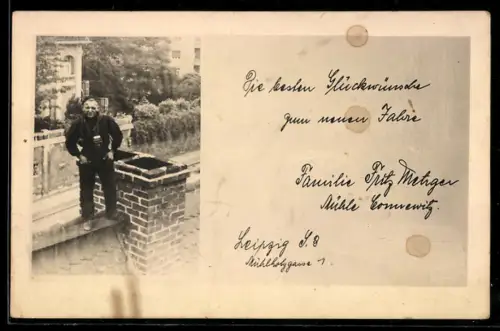 Die besten Glückwünsche
zum neuen Jahre
Familie Fritz Metzger
Mühle Connewitz.
Leipzig S. 3
Mühlholzgasse 1.